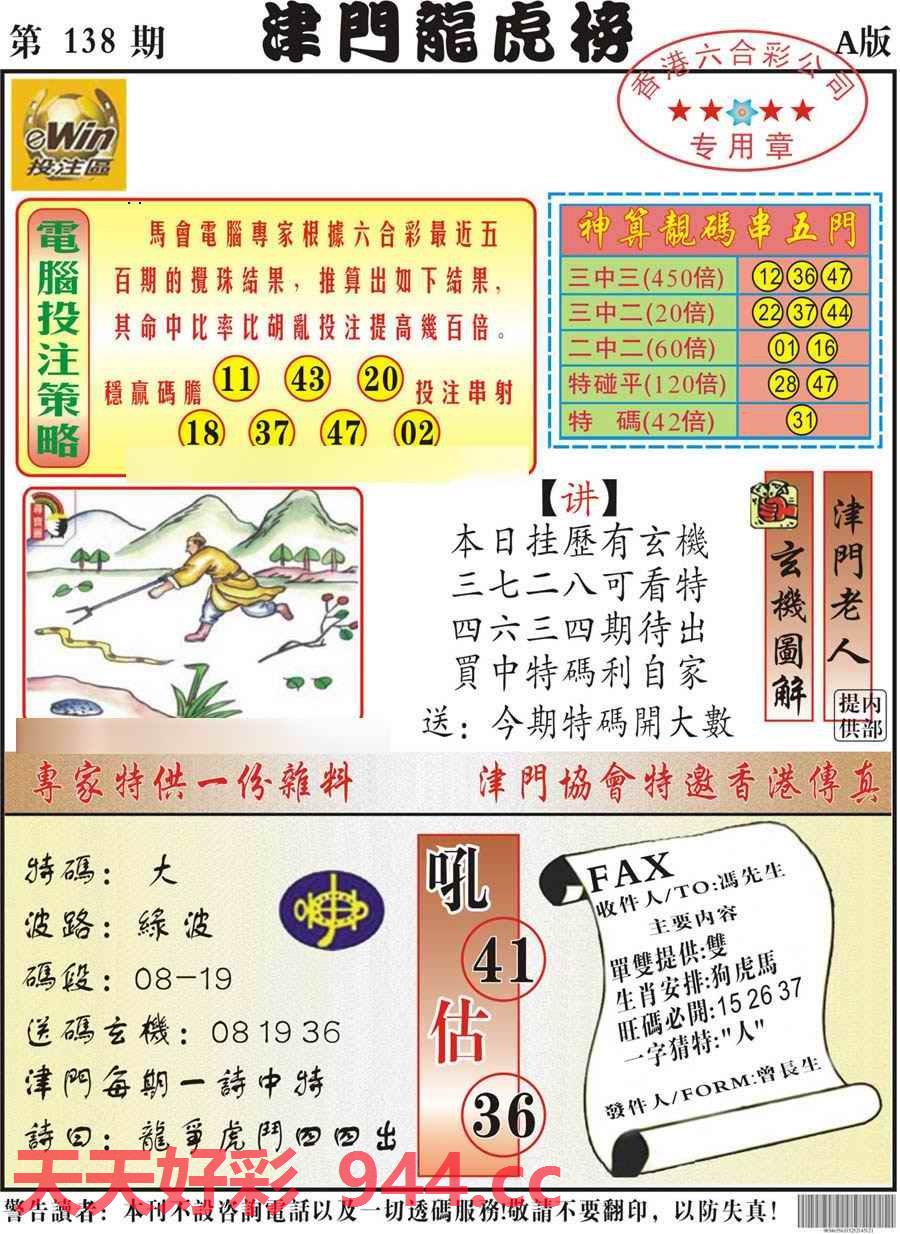 第 138 期
津門龍虎榜
A版
香港六合彩公司
专用章
eWin
投注區
電腦投注策略
馬會電腦專家根據六合彩最近五
百期的攪珠結果，推算出如下結果，
其命中比率比胡亂投注提高幾百倍。
穩贏碼膽 11 43 20 投注串射
18 37 47 02
神算靚碼串五門
三中三(450倍) 12 36 47
三中二(20倍) 22 37 44
二中二(60倍) 01 16
特碰平(120倍) 28 47
特 碼(42倍) 31
尋寶圖
【讲】
本日挂歷有玄機
三七二八可看特
四六三四期待出
買中特碼利自家
送：今期特碼開大數
玄機圖解
津門老人
内部提供
專家特供一份雜料
津門協會特邀香港傳真
特碼：大
波路：綠波
碼段：08-19
送碼玄機：08 19 36
津門每期一詩中特
詩曰：龍爭虎鬥四四出
吼
41
估
36
FAX
收件人/TO:馮先生
主要内容
單雙提供:雙
生肖安排:狗虎馬
旺碼必開:15 26 37
一字猜特:"人"
發件人/FORM:曾長生
天天好彩 944.cc
警告讀者：本刊不設咨詢電話以及一切透碼服務!敬請不要翻印，以防失真!